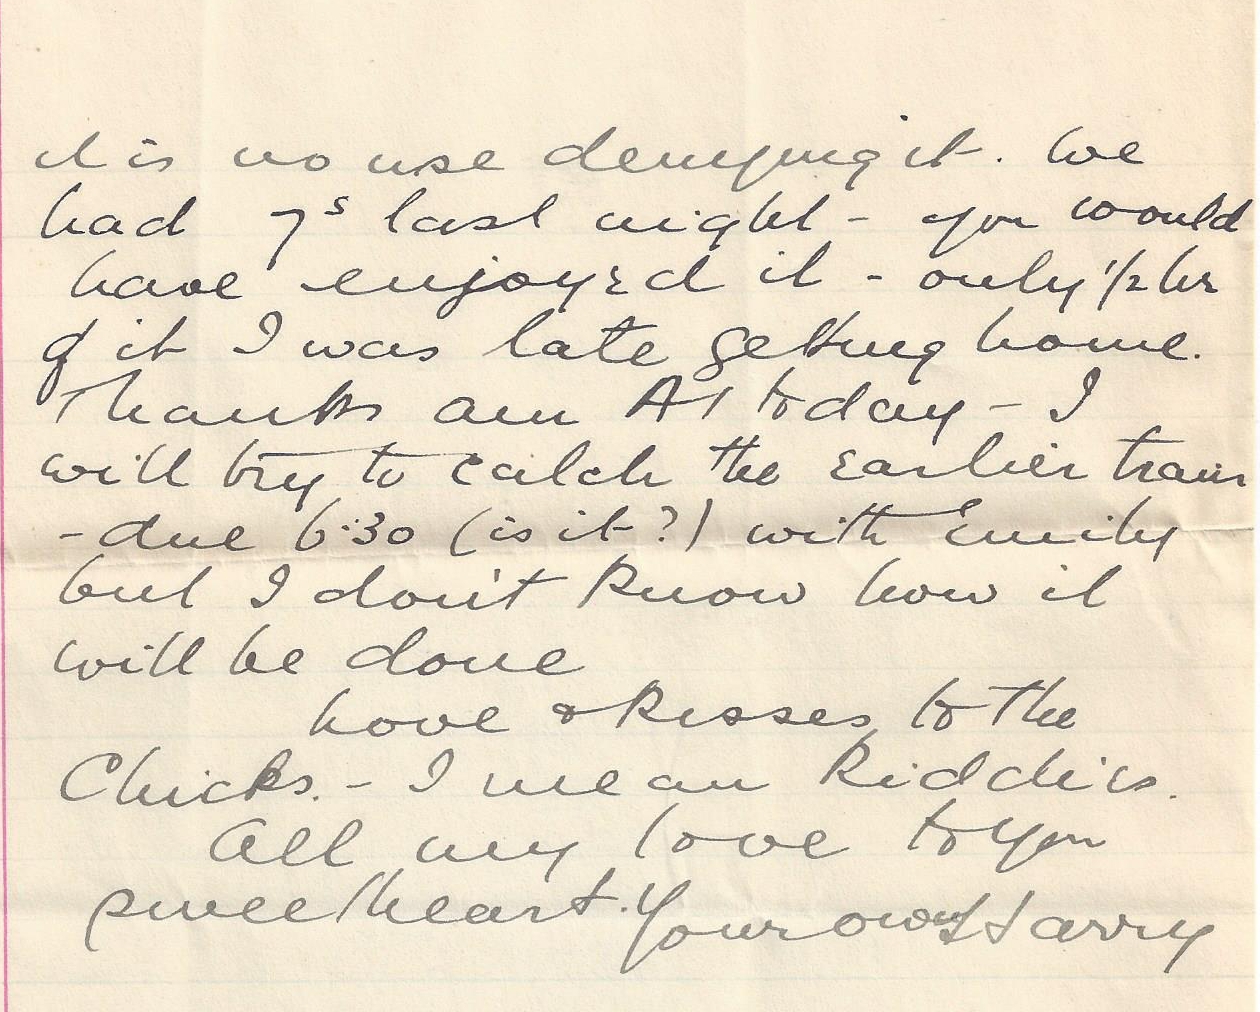 it is no use denying it. We
had 7s last night - you would
have enjoyed it - only 1/2 hr
of it I was late getting home.
Thanks am A1 today - I
will try to catch the earlier train
- due 6.30 (is it?) with Emily
but I don't know how it
will be done
Love & kisses to the
Chicks. - I mean kiddies.
All my love to you
sweetheart. Your own Harry